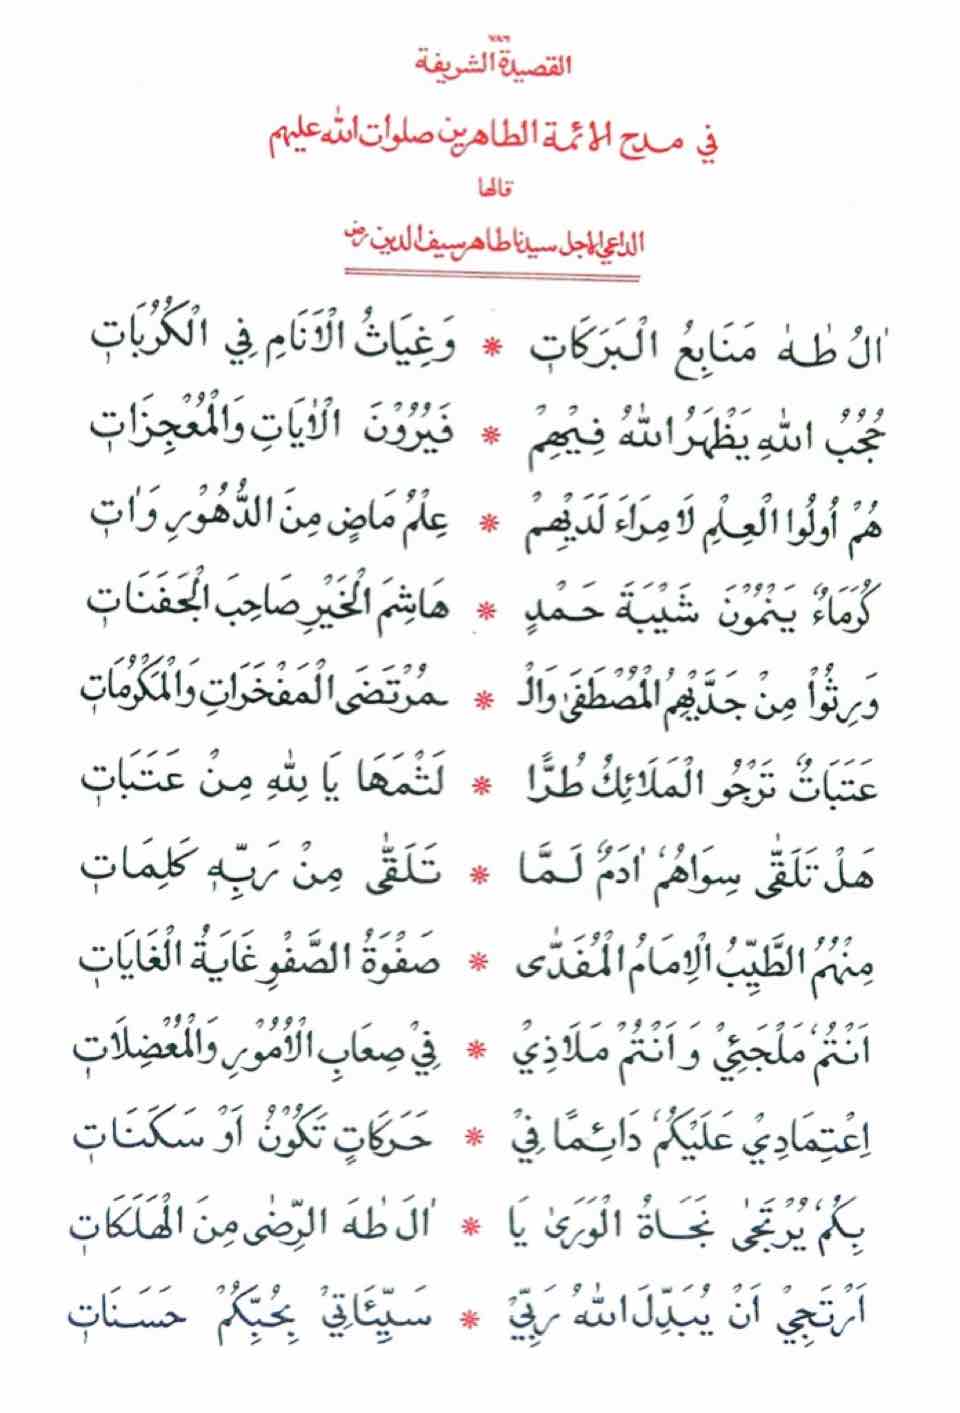 ٧٨٦
القصيدة الشريفة
في مدح الائمة الطاهرين صلوات الله عليهم
قالها
الداعي الاجل سيدنا طاهر سيف الدين رض
اٰلُ طٰهٰ مَنَابِعُ الْبَرَكَاتِ * وَغِيَاثُ الْاَنَامِ فِي الْكُرُبَاتِ
حُجُبُ اللهِ يَظْهَرُ اللهُ فِيْهِمْ * فَيُرُوْنَ الْاٰيَاتِ وَالْمُعْجِزَاتِ
هُمْ اُولُوا الْعِلْمِ لَا مِرَاءَ لَدَيْهِمْ * عِلْمُ مَاضٍ مِنَ الدُّهُوْرِ وَاٰتِ
كُرَمَاءٌ يَنْمُوْنَ شَيْبَةَ حَمْدٍ * هَاشِمَ الْخَيْرِ صَاحِبَ الْجَفَنَاتِ
وَرِثُوْا مِنْ جَدَّيْهِمُ الْمُصْطَفٰى وَالْـ * ـمُرْتَضَى الْمَفْخَرَاتِ وَالْمَكْرُمَاتِ
عَتَبَاتٌ تَرْجُو الْمَلَائِكُ طُرًّا * لَثْمَهَا يَا لِلّٰهِ مِنْ عَتَبَاتِ
هَلْ تَلَقّٰى سِوَاهُمُ اٰدَمٌ لَمَّا * تَلَقّٰى مِنْ رَبِّهٖ كَلِمَاتِ
مِنْهُمُ الطَّيِّبُ الْاِمَامُ الْمُفَدّٰى * صَفْوَةُ الصَّفْوِ غَايَةُ الْغَايَاتِ
اَنْتُمُ مَلْجَئِيْ وَ اَنْتُمْ مَلَاذِيْ * فِيْ صِعَابِ الْاُمُوْرِ وَالْمُعْضِلَاتِ
اِعْتِمَادِيْ عَلَيْكُمُ دَائِمًا فِيْ * حَرَكَاتٍ تَكُوْنُ اَوْ سَكَنَاتِ
بِكُمُ يُرْتَجٰى نَجَاةُ الْوَرٰى يَا * اٰلَ طٰهَ الرِّضٰى مِنَ الْهَلَكَاتِ
اَرْتَجِيْ اَنْ يُبَدِّلَ اللهُ رَبِّيْ * سَيِّئَاتِيْ بِحُبِّكُمْ حَسَنَاتِ